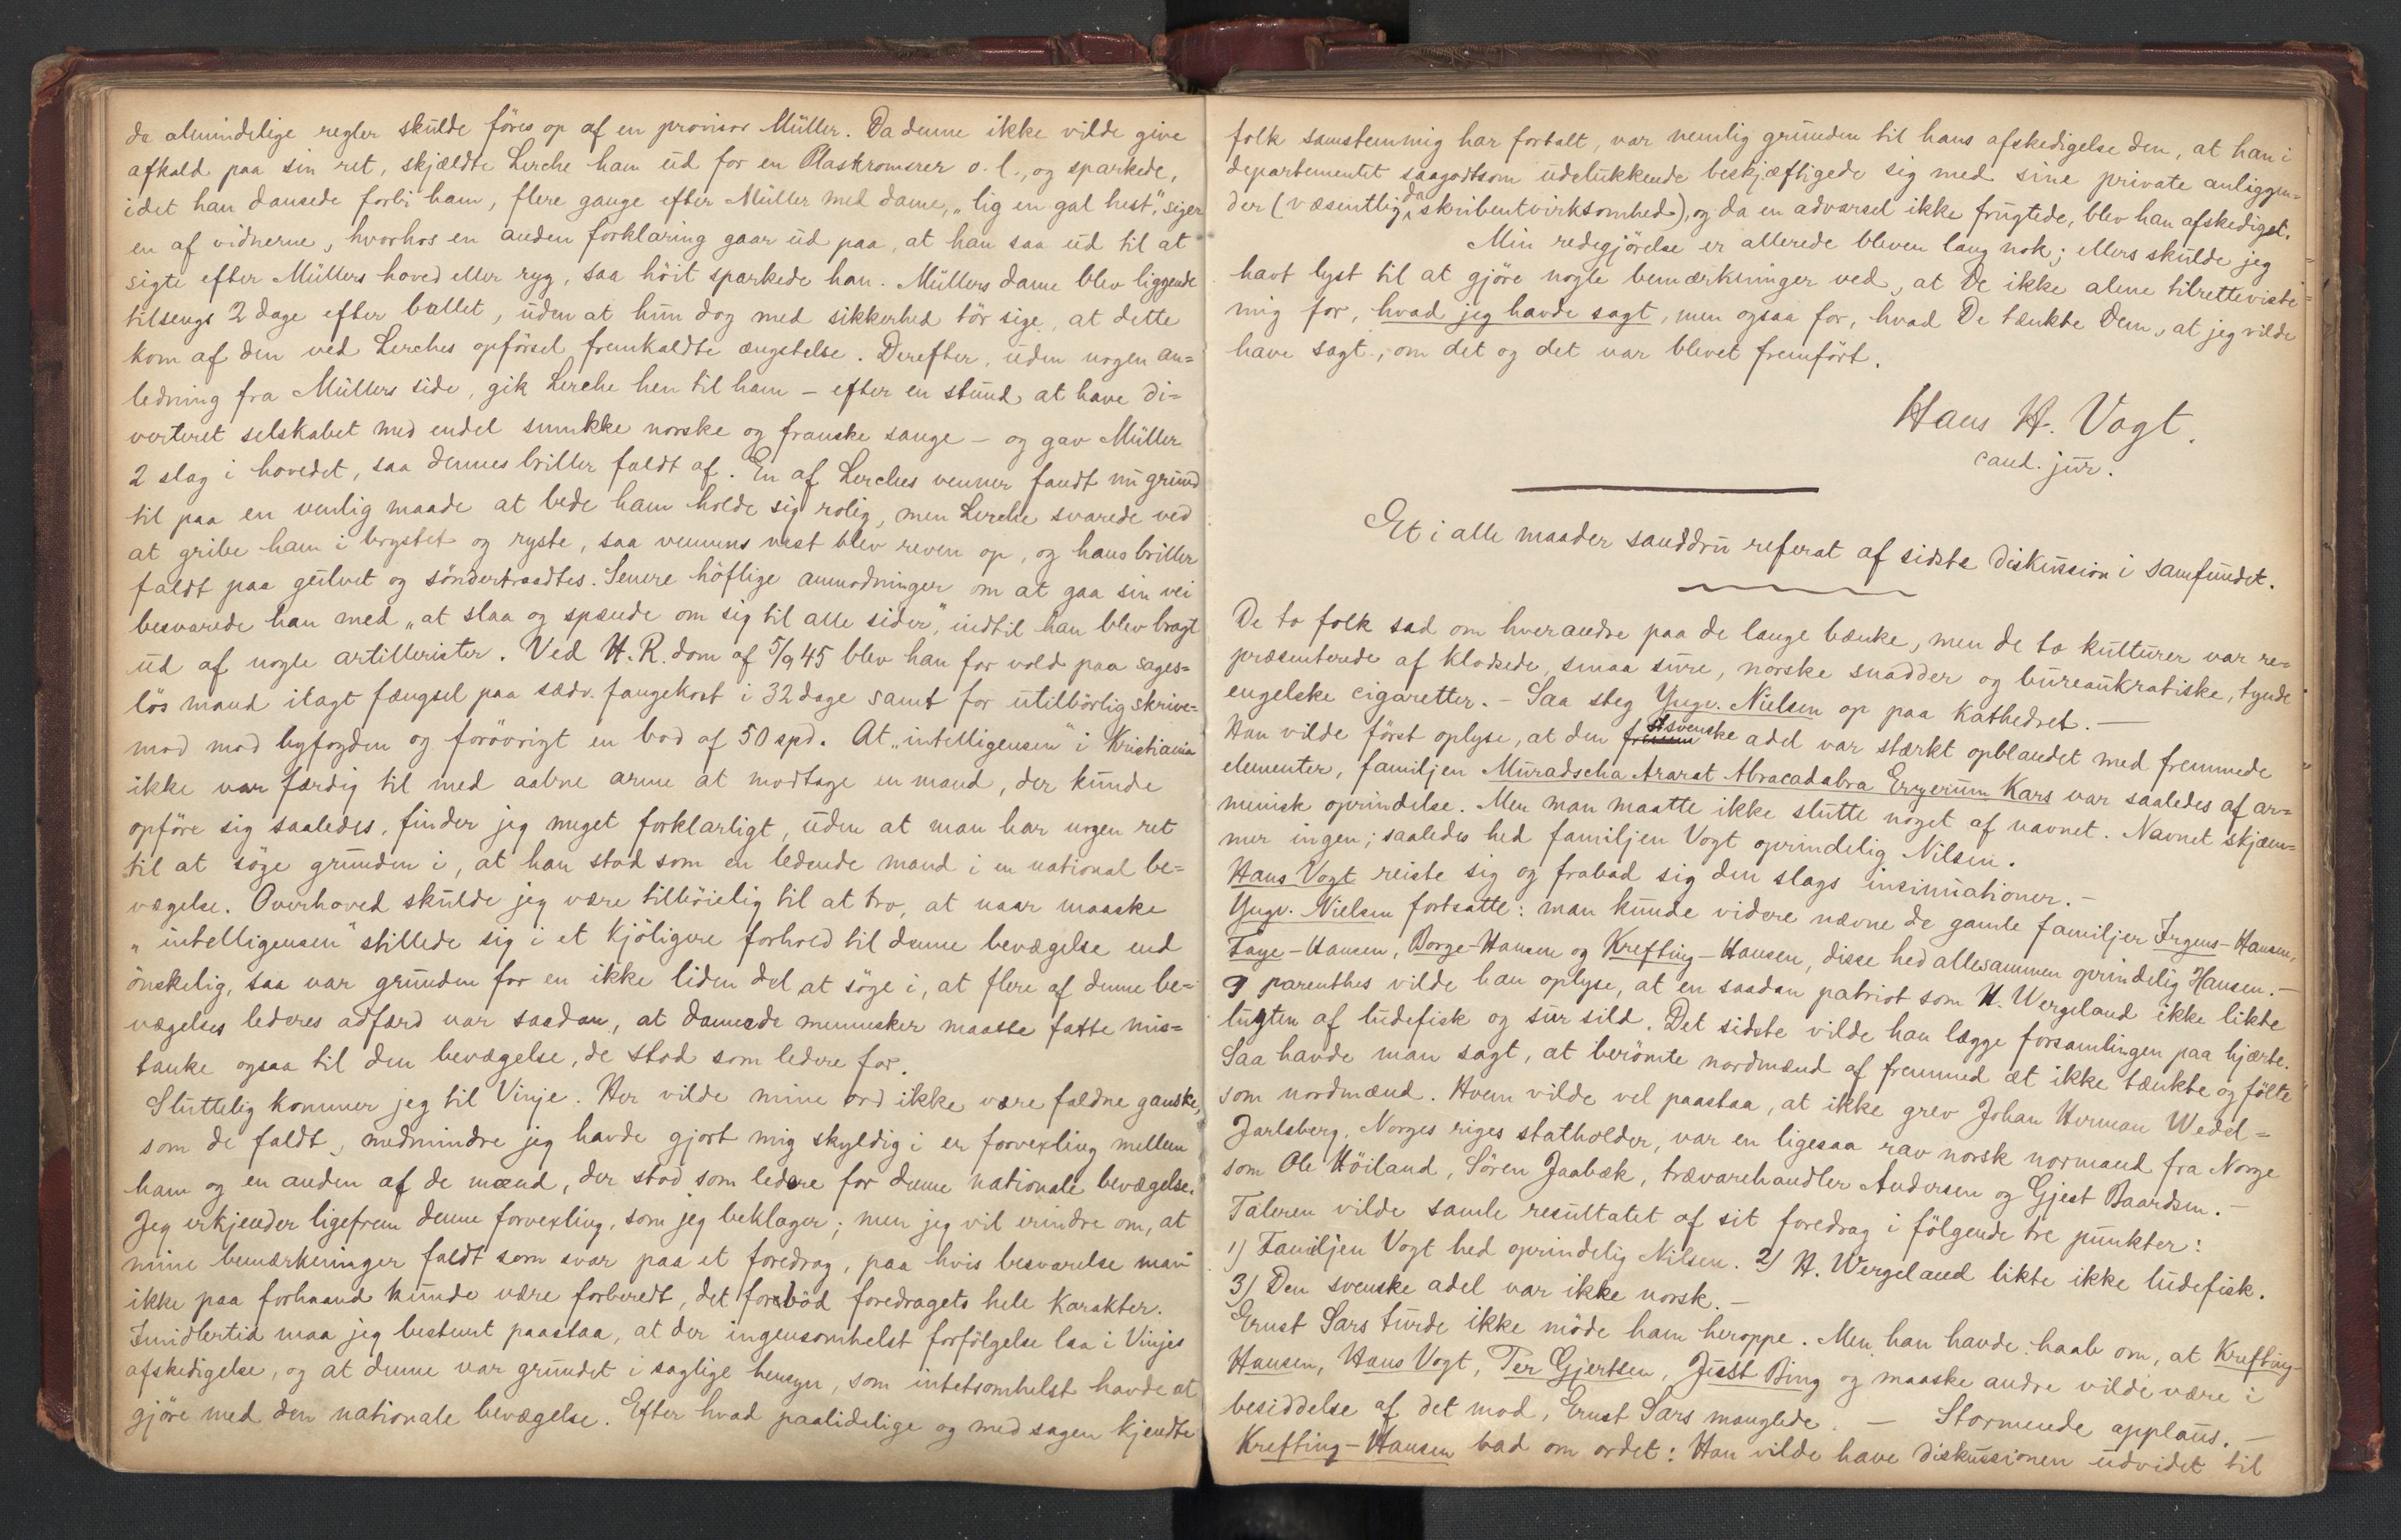 de almindelige regler skulde föres op af en provisor Müller. Da denne ikke vilde give
afkald paa sin ret, skjældte Lerche ham ud for en Plaskromerer o. l., og sparkede,
idet han dansede forbi ham, flere gange efter Müller med dame, „lig en gal hest", siger
en af vidnerne, hvorhos en anden forklaring gaar ud paa, at han saa ud til at
sigte efter Müllers hoved eller ryg, saa höit sparkede han. Müllers dame blev liggende
tilsengs 2 dage efter ballet, uden at hun dog med sikkerhed tör sige, at dette
kom af den ved Lerches opförsel fremkaldte ængstelse. Derefter, uden nogen an=
ledning fra Müllers side, gik Lerche hen til ham – efter en stund at have di=
verteret selskabet med endel smukke norske og franske sange – og gav Müller
2 slag i hovedet, saa dennes briller faldt af. En af Lerches venner fandt nu grund
til paa en venlig maade at bede ham holde sig rolig, men Lerche svarede ved
at gribe ham i brystet og ryste, saa vennens vest blev reven op, og hans briller
faldt paa gulvet og söndertraadtes. Senere höflige anmodninger om at gaa sin vei
besvarede han med „at slaa og spænde om sig til alle sider", indtil han blev bragt
ud af nogle artillerister. Ved H. R. dom af 5/9 45 blev han for vold paa sages=
lös mand ilagt fængsel paa sædv. fangekost i 32 dage samt for utilbörlig skrive=
mod mod byfogden og forövrigt en bod af 50 spd. At „intelligensen" i Kristiania
ikke var færdig til med aabne arme at modtage en mand, der kunde
opföre sig saaledes, finder jeg meget forklarligt, uden at man har nogen ret
til at söge grunden i, at han stod som en ledende mand i en national be=
vægelse. Overhoved skulde jeg være tilböielig til at tro, at naar maaske
„intelligensen" stillede sig i et kjöligere forhold til denne bevægelse end
önskelig, saa var grunden for en ikke liden del at söge i, at flere af denne be=
vægelses lederes adfærd var saadan, at dannede mennesker maatte fatte mis=
tanke ogsaa til den bevægelse, de stod som ledere for.
Sluttelig kommer jeg til Vinje. Her vilde mine ord ikke være faldne ganske,
som de faldt, medmindre jeg havde gjort mig skyldig i en forvexling mellem
ham og en anden af de mænd, der stod som ledere for denne nationale bevægelse.
Jeg erkjender ligefrem denne forvexling, som jeg beklager; men jeg vil erindre om, at
mine bemærkninger faldt som svar paa et foredrag, paa hvis besvarelse man
ikke paa forhaand kunde være forberedt, det forböd foredragets hele karakter.
Imidlertid maa jeg bestemt paastaa, at der ingensomhelst forfölgelse laa i Vinjes
afskedigelse, og at denne var grundet i saglige hensyn, som intetsomhelst havde at
gjöre med den nationale bevægelse. Efter hvad paalidelige og med sagen kjendte
folk samstemmig har fortalt, var nemlig grunden til hans afskedigelse den, at han i
departementet saagodtsom udelukkende beskjæftigede sig med sine private anliggen=
der (væsentlig da skribentvirksomhed), og da en advarsel ikke frugtede, blev han afskediget.
Min redegjörelse er allerede bleven lang nok; ellers skulde jeg
havt lyst til at gjöre nogle bemærkninger ved, at De ikke alene tilretteviste
mig for, hvad jeg havde sagt, men ogsaa for, hvad De tænkte Dem, at jeg vilde
have sagt, om det og det var blevet fremfört.
Hans H. Vogt.
cand. jur.
Et i alle maader sanddru referat af sidste diskussion i samfundet.
De to folk sad om hverandre paa de lange bænke, men de to kulturer var re=
præsenterede af klodsede, smaa sure, norske snadder og bureaukratiske, tynde
engelske cigaretter. – Saa steg Yngv. Nielsen op paa kathedret. –
Han vilde först oplyse, at den svenske adel var stærkt opblandet med fremmede
elementer, familjen Muradscha Ararat Abracadabra Erzerum Kars var saaledes af ar=
menisk oprindelse. Men man maatte ikke slutte noget af navnet. Navnet skjæm=
mer ingen; saaledes hed familjen Vogt oprindelig Nilsen.
Hans Vogt reiste sig og frabad sig den slags insinuationer. –
Yngv. Nielsen fortsatte: man kunde videre nævne de gamle familjer Irgens-Hansen,
Faye-Hansen, Borge-Hansen og Krefting-Hansen, disse hed allesammen oprindelig Hansen. –
I parenthes vilde han oplyse, at en saadan patriot som H. Wergeland ikke likte
lugten af ludefisk og sur sild. Det sidste vilde han lægge forsamlingen paa hjærte.
Saa havde man sagt, at berömte nordmænd af fremmed æt ikke tænkte og fölte
som nordmænd. Hvem vilde vel paastaa, at ikke grev Johan Herman Wedel=
Jarlsberg, Norges riges statholder, var en ligesaa rav norsk normand fra Norge
som Ole Höiland, Sören Jaabæk, trævarehandler Andersen og Gjest Baardsen. –
Taleren vilde samle resultatet af sit foredrag i fölgende tre punkter:
1) Familjen Vogt hed oprindelig Nilsen. 2) H. Wergeland likte ikke ludefisk.
3) Den svenske adel var ikke norsk. –
Ernst Sars turde ikke möde ham heroppe. Men han havde haab om, at Krefting-
Hansen, Hans Vogt, Per Gjertsen, Just Bing og maaske andre vilde være i
besiddelse af det mod, Ernst Sars manglede. – Stormende applaus. –
Krefting-Hansen bad om ordet: Han vilde have diskussionen udvidet til